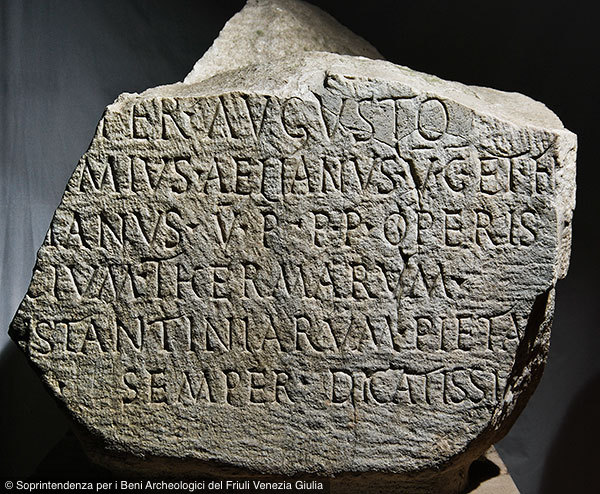 PER·AVGVSTO
MIVS·AELIANVS·V·C·ET F
TANVS·V·P·P·P·OPERIS
CIVM·THERMARVM·
STANTINIARVM·PIETA
SEMPER·DICATISSI
© Soprintendenza per i Beni Archeologici del Friuli Venezia Giulia